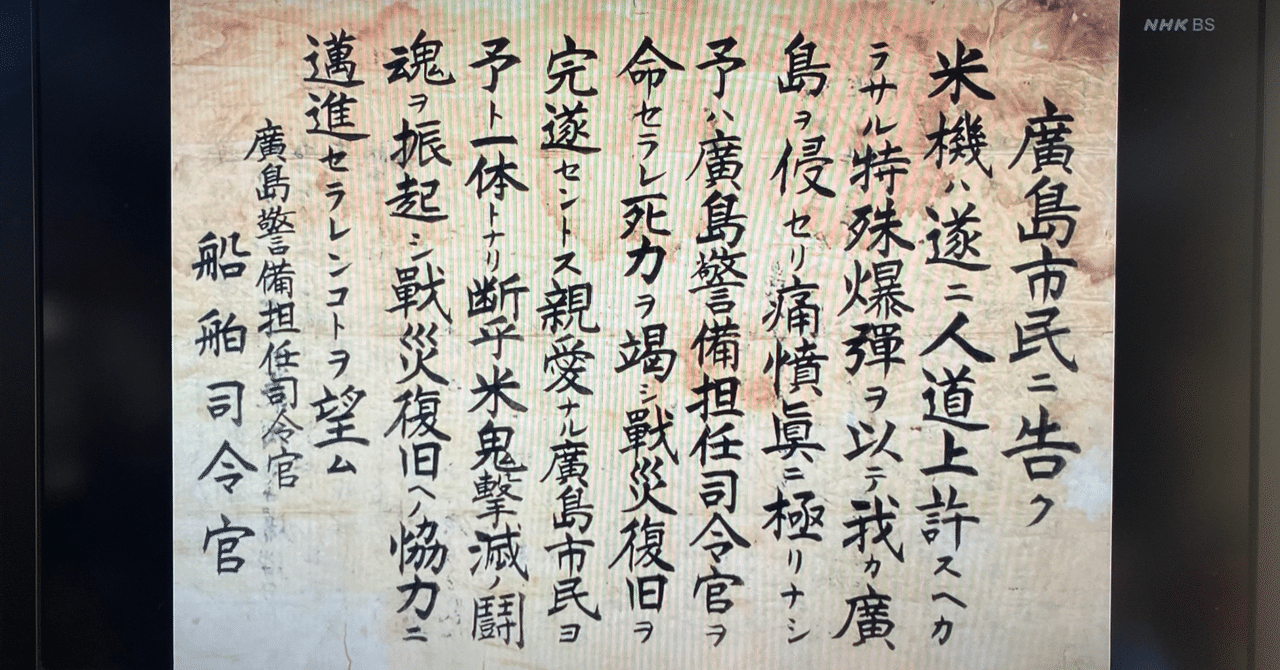 廣島市民ニ告ク
米機ハ遂ニ人道上許スヘカ
ラサル特殊爆彈ヲ以テ我カ廣
島ヲ侵セリ痛憤眞ニ極リナシ
予ハ廣島警備担任司令官ヲ
命セラレ死力ヲ竭シ戰災復旧ヲ
完遂セントス親愛ナル廣島市民ヨ
予ト一体トナリ断乎米鬼撃滅ノ鬪
魂ヲ振起シ戰災復旧ヘノ協力ニ
邁進セラレンコトヲ望ム
廣島警備担任司令官
船舶司令官
NHK BS